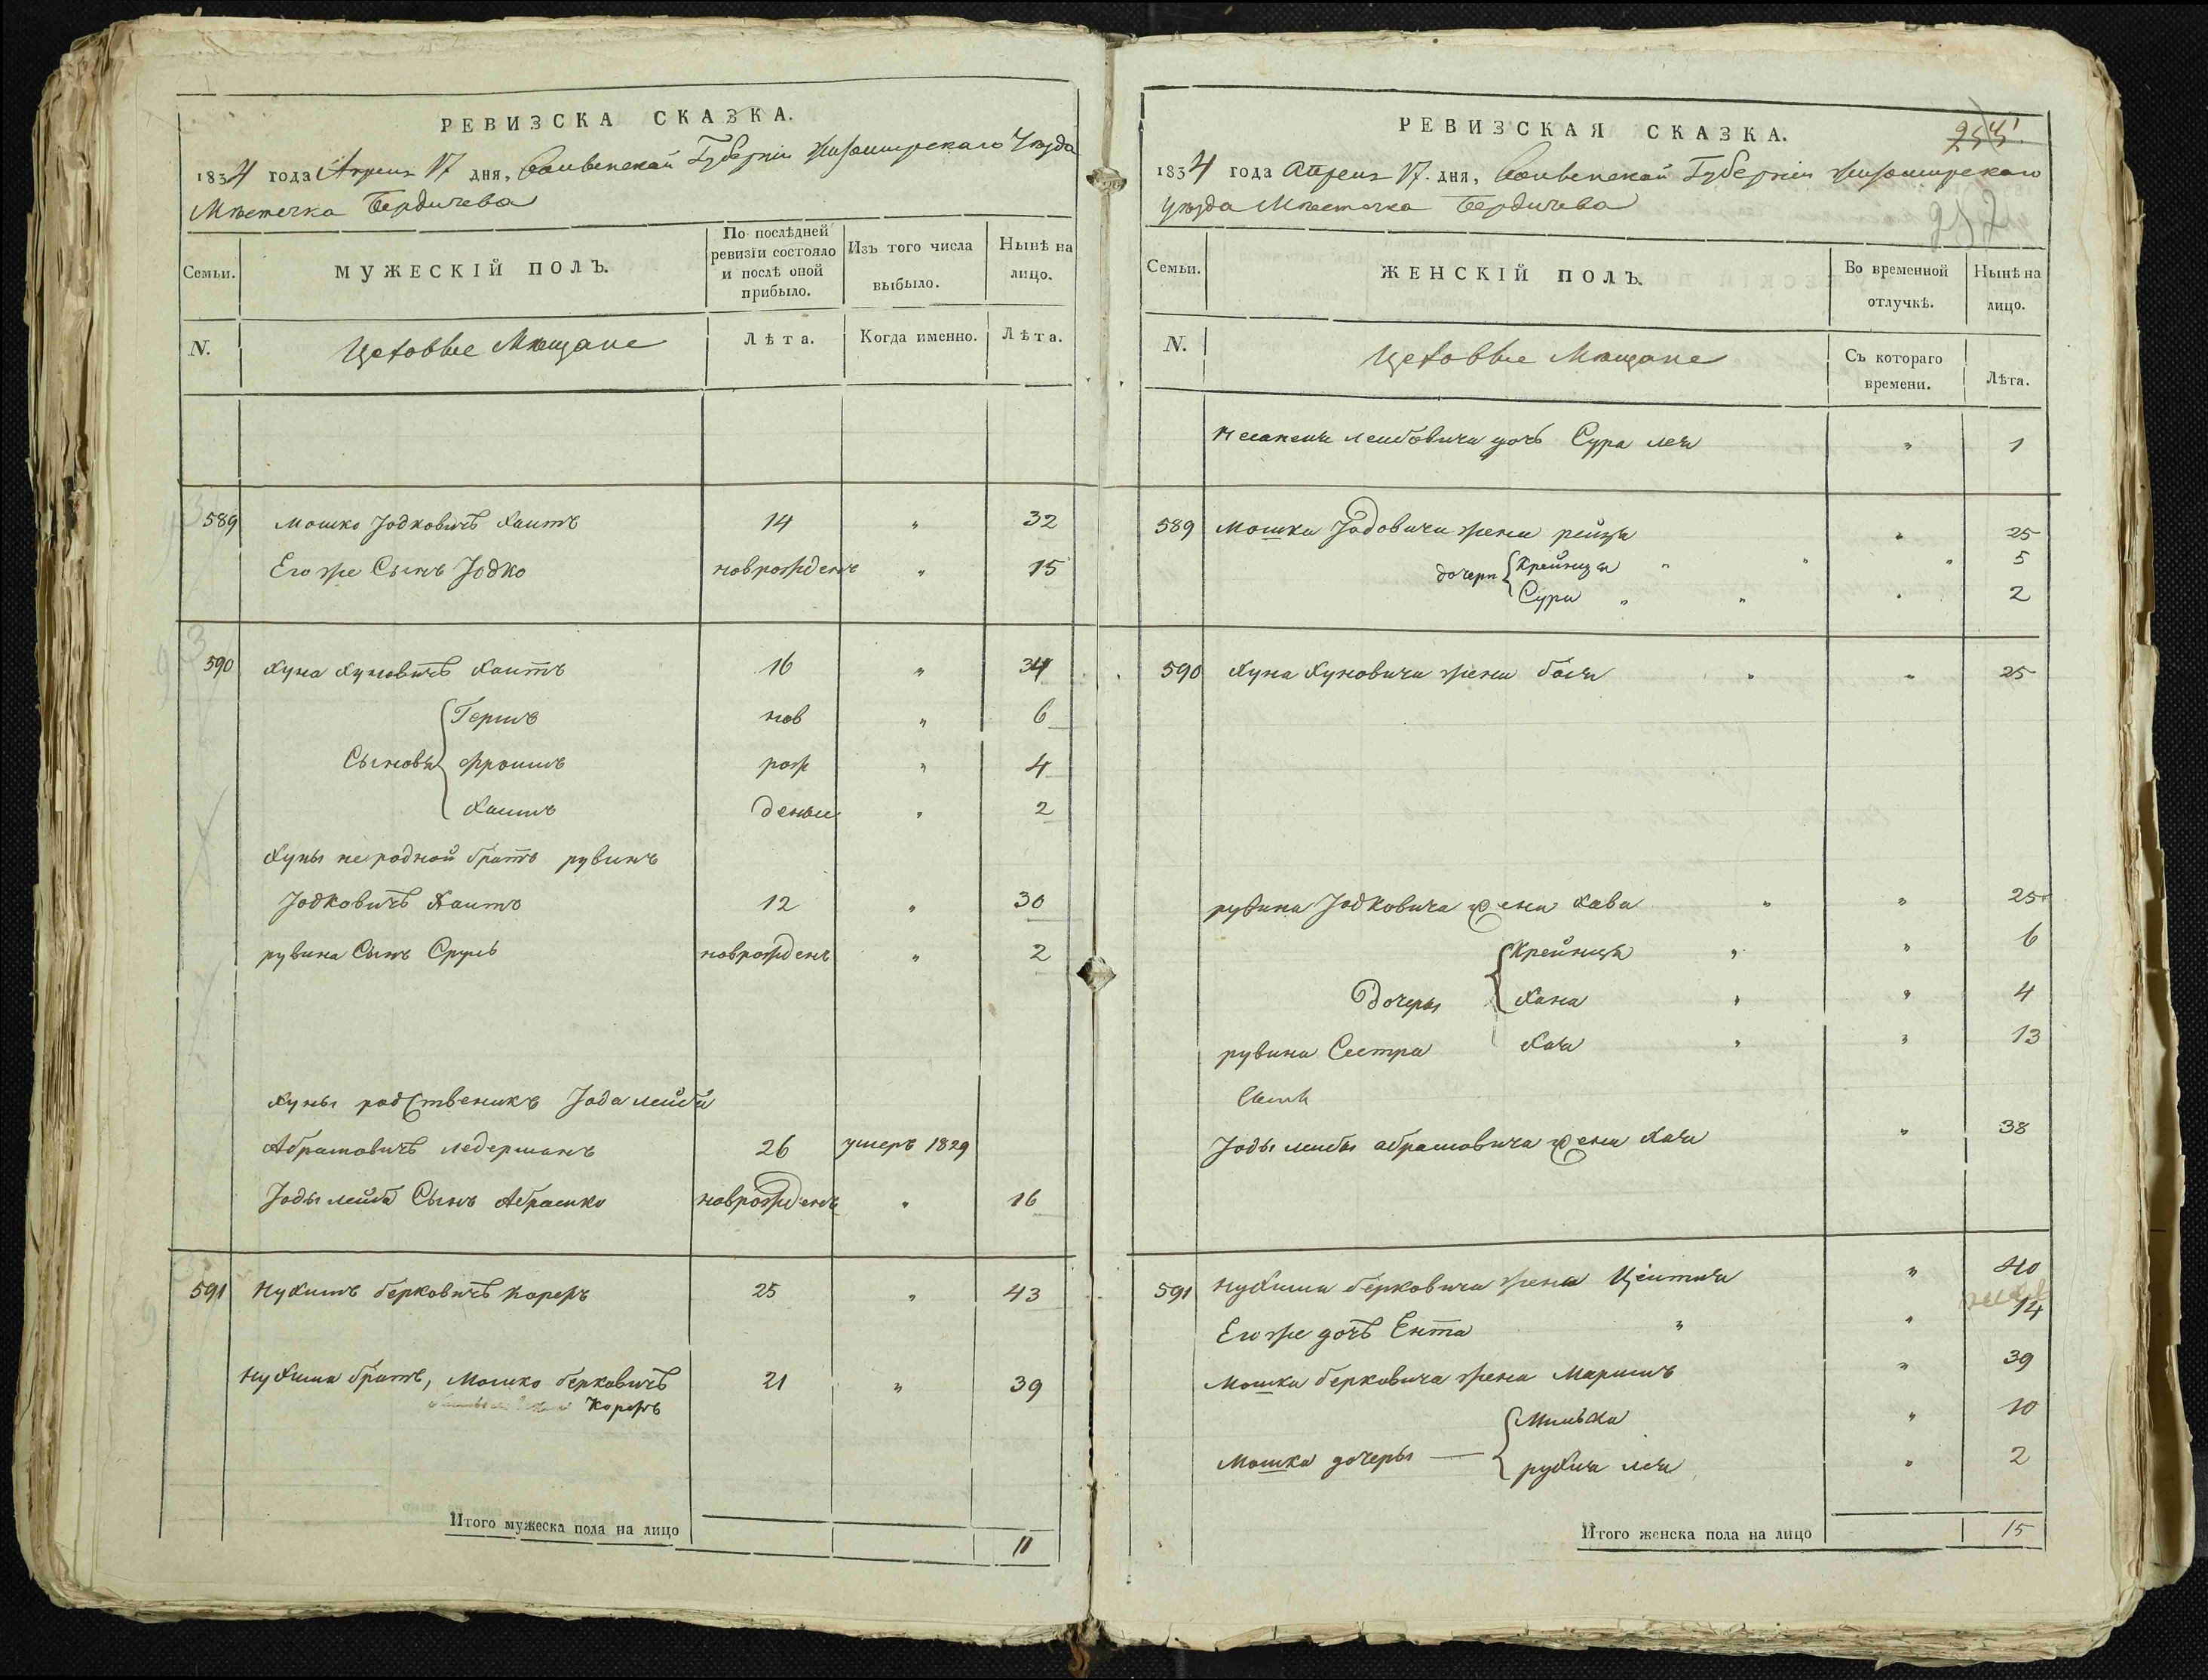 РЕВИЗСКА СКАЗКА.
1834 года Апреля 17 дня, Волынской Губерніи Житомирскаго Уезда
Местечка Бердичева
Семьи.
МУЖЕСКІЙ ПОЛЪ.
По послѣдней ревизіи состояло и послѣ оной прибыло.
Изъ того числа выбыло.
Нынѣ на лицо.
N.
Цеховые Мещане
Лѣта.
Когда именно.
Лѣта.
589 Мошко Іодковичъ Хаитъ 14 " 32
Его же Сынъ Іодко новрожденъ " 15
590 Хуна Хуновичъ Хаитъ 16 " 34
Гершъ нов " 6
Сыновья Фроимъ рож " 4
Хаимъ деныи " 2
Хуны неродной братъ рувинъ
Іодковичъ Хаитъ 12 " 30
рувина Сынъ Сруль новрожденъ " 2
Хуны родственикъ Іода лейба
Абрамовичъ ледерманъ 26 умеръ 1829
Іоды лейба Сынъ Абрамко новрожденъ " 16
591 Нухимъ берковичъ корегъ 25 " 43
Нухима братъ, Мошко берковичъ 21 " 39
Итого мужеска пола на лицо 11
РЕВИЗСКАЯ СКАЗКА.
1834 года Апреля 17. дня, Волынской Губерніи Житомирскаго
Уезда Местечка Бердичева
Семьи.
ЖЕНСКІЙ ПОЛЪ.
Во временной отлучкѣ.
Нынѣ на лицо.
N.
Цеховые Мещане
Съ котораго времени.
Лѣта.
лейбовича дочь Сура лея " 1
589 Мошка Іодовича жена рейзя " 25
дочери Крейнця " " " 5
Сура " " " 2
590 Хуна Хуновича жена бася " " 25
рувина Іодковича жена Хава " " 25
Крейнця " " 6
Дочеры Хана " " 4
рувина Сестра Хая " " 13
Іоды лейбы абрамовича жена Хая " 38
591 Нухима берковича жена " 40
Его же дочь Ента " " 14
Мошка берковича жена Маримъ " 39
Милька " 10
Мошка дочеры — рухля лея " 2
Итого женска пола на лицо 15